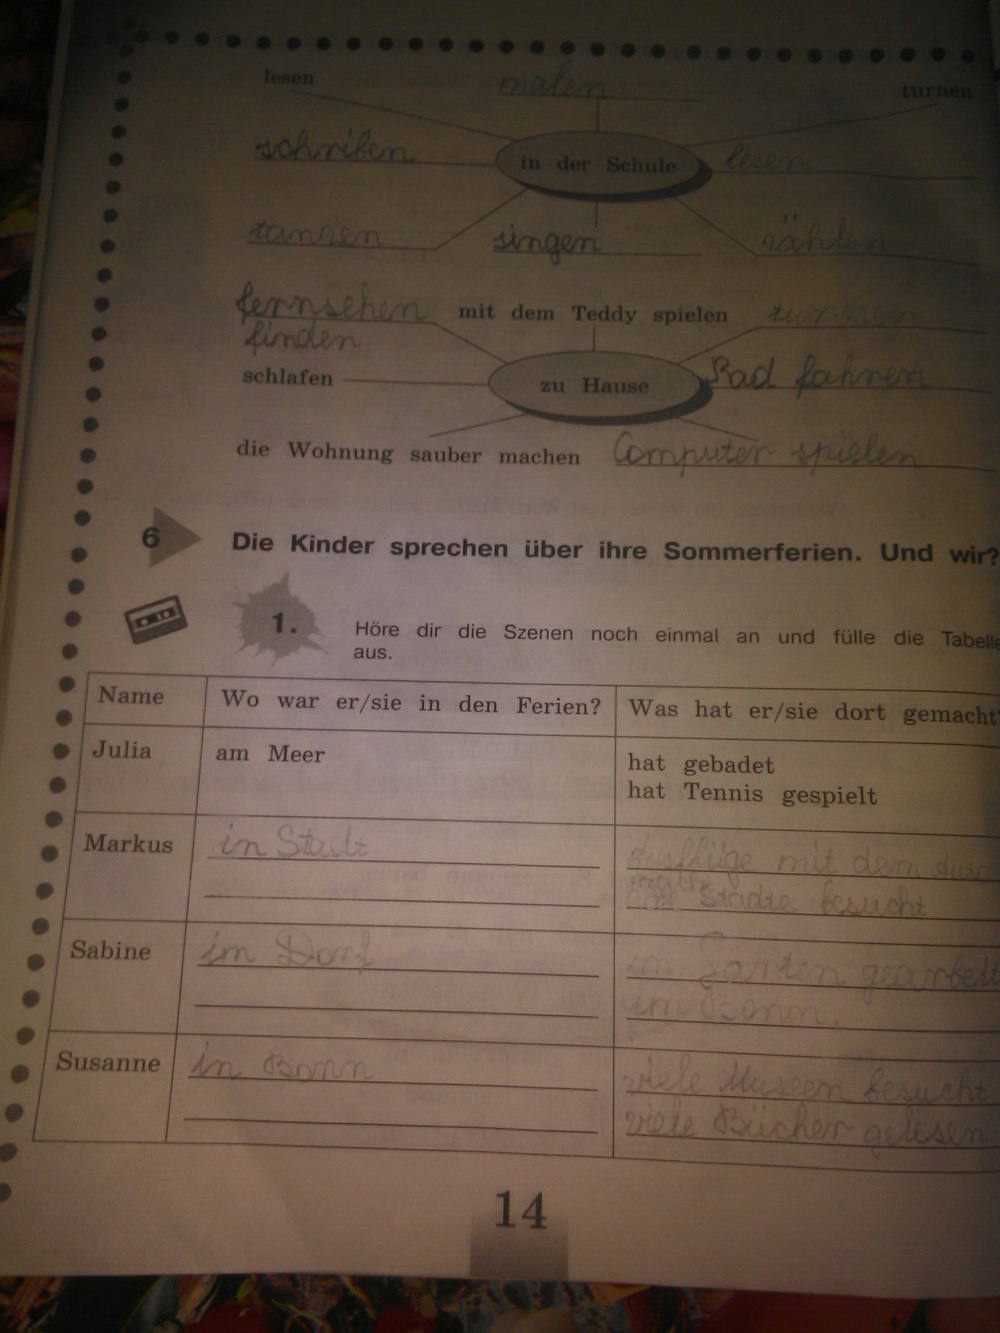 lesen malen turnen
schriben in der Schule lesen
tanzen singen zählen
fernsehen mit dem Teddy spielen turnen
finden
schlafen zu Hause Rad fahren
die Wohnung sauber machen Computer spielen
6 Die Kinder sprechen über ihre Sommerferien. Und wir?
1. Höre dir die Szenen noch einmal an und fülle die Tabelle
aus.
Name Wo war er/sie in den Ferien? Was hat er/sie dort gemacht
Julia am Meer hat gebadet
hat Tennis gespielt
Markus in Stadt Ausflüge mit dem
Städte besucht
Sabine im Dorf im Garten gearbeit
im
Susanne in Bonn viele Museen besucht
viele Bücher gelesen
14